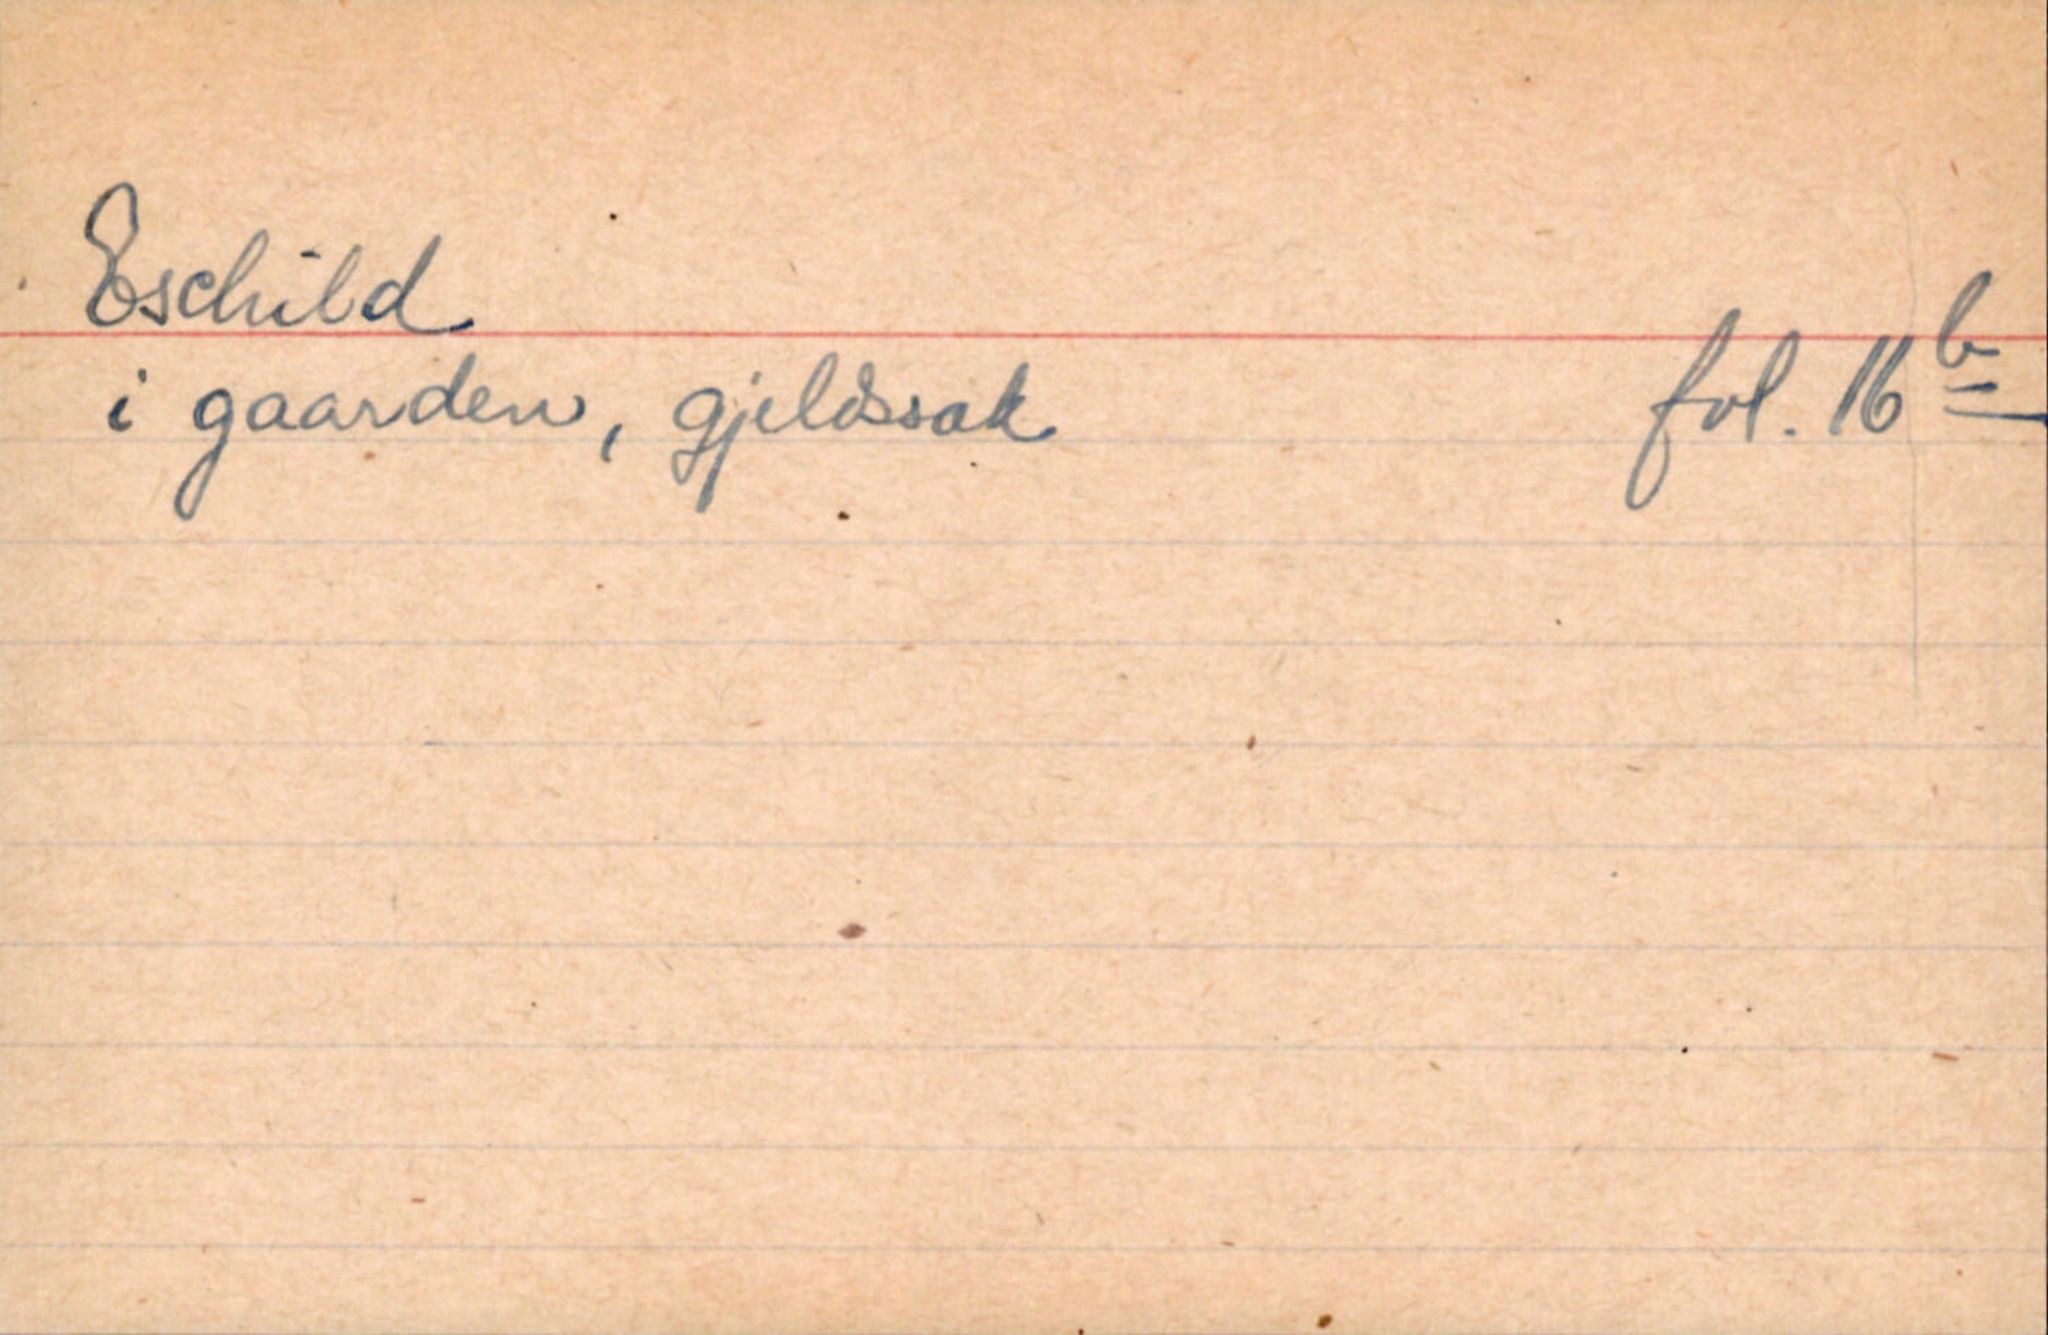 Eschild
i gaarden, gjeldssak fol. 16b